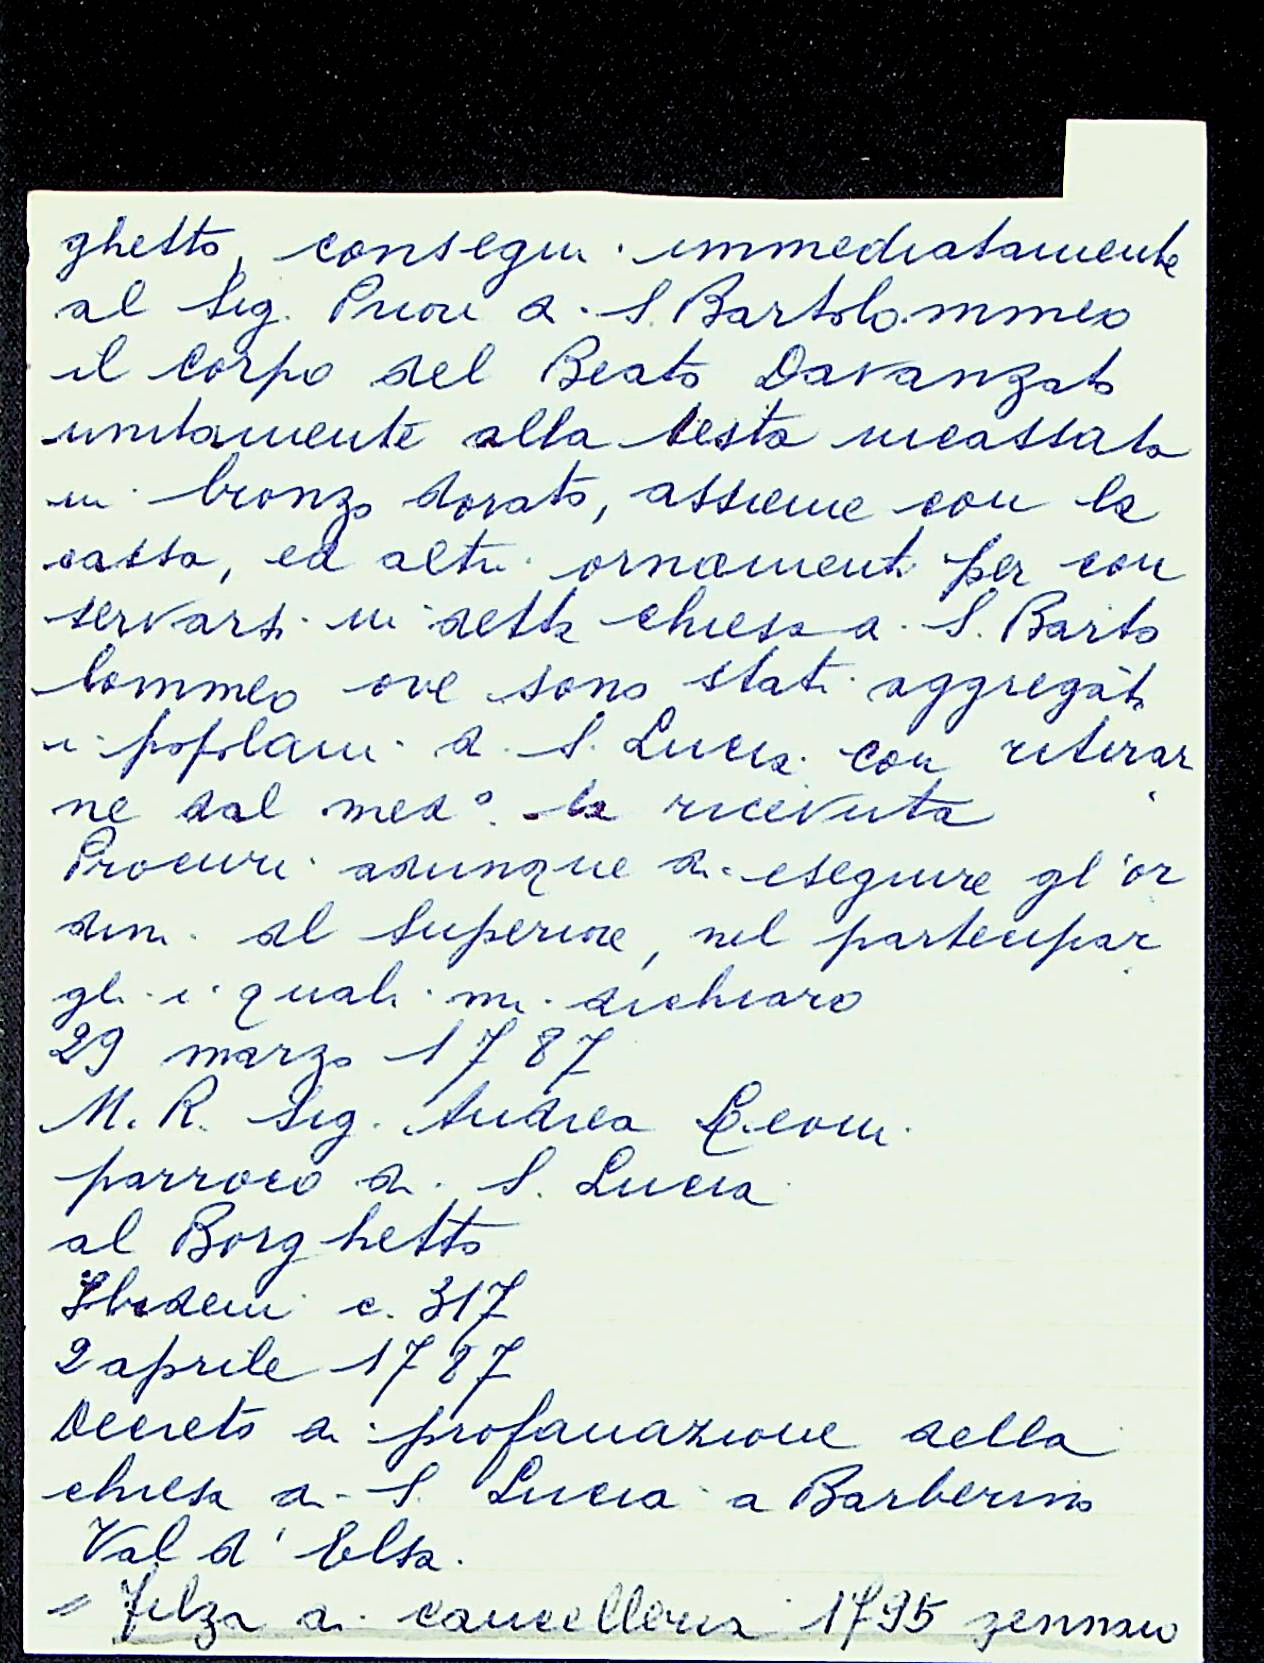 ghetto, consegni immediatamente
al Sig. Priore di S. Bartolommeo
il Corpo del Beato Davanzato
unitamente alla testa incassata
in bronzo dorato, assieme con la
cassa, ed altri ornamenti per con
servarsi in detta chiesa di S. Barto
lommeo ove sono stati aggregati
i popolani di S. Lucia con ritirar
ne dal med° la ricevuta
Procuri adunque di eseguire gl'or
dini del Superiore, nel partecipar
gli i quali mi dichiaro
29 marzo 1787
M. R. Sig. Andrea Leoni
parroco di S. Lucia
al Borghetto
Ibidem c. 317
2 aprile 1787
Decreto di profanazione della
chiesa di S. Lucia a Barberino
Val d'Elsa.
= Filza di cancelleria 1795 gennaio